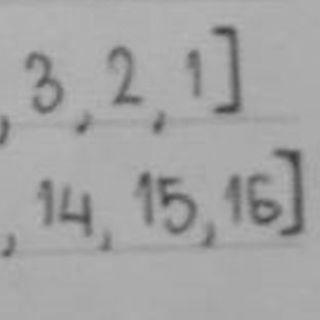 , 3, 2, 1]
, 14, 15, 16]